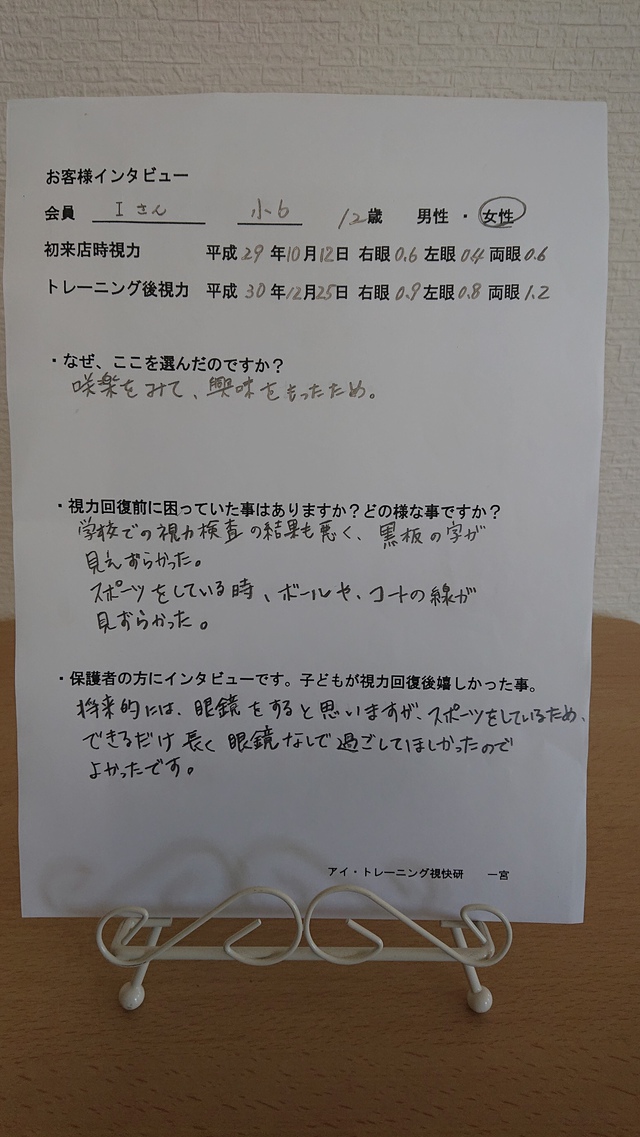 お客様インタビュー
会員 Iさん 小6 12歳 男性・女性
初来店時視力 平成29年10月12日 右眼0.6 左眼0.4 両眼0.6
トレーニング後視力 平成30年12月25日 右眼0.9 左眼0.8 両眼1.2
・なぜ、ここを選んだのですか?
咲楽をみて、興味をもったため。
・視力回復前に困っていた事はありますか?どの様な事ですか?
学校での視力検査の結果も悪く、黒板の字が
見えずらかった。
スポーツをしている時、ボールや、コートの線が
見ずらかった。
・保護者の方にインタビューです。子どもが視力回復後嬉しかった事。
将来的には、眼鏡をすると思いますが、スポーツをしているため、
できるだけ長く眼鏡なしで過ごしてほしかったので
よかったです。
アイ・トレーニング視快研 一宮